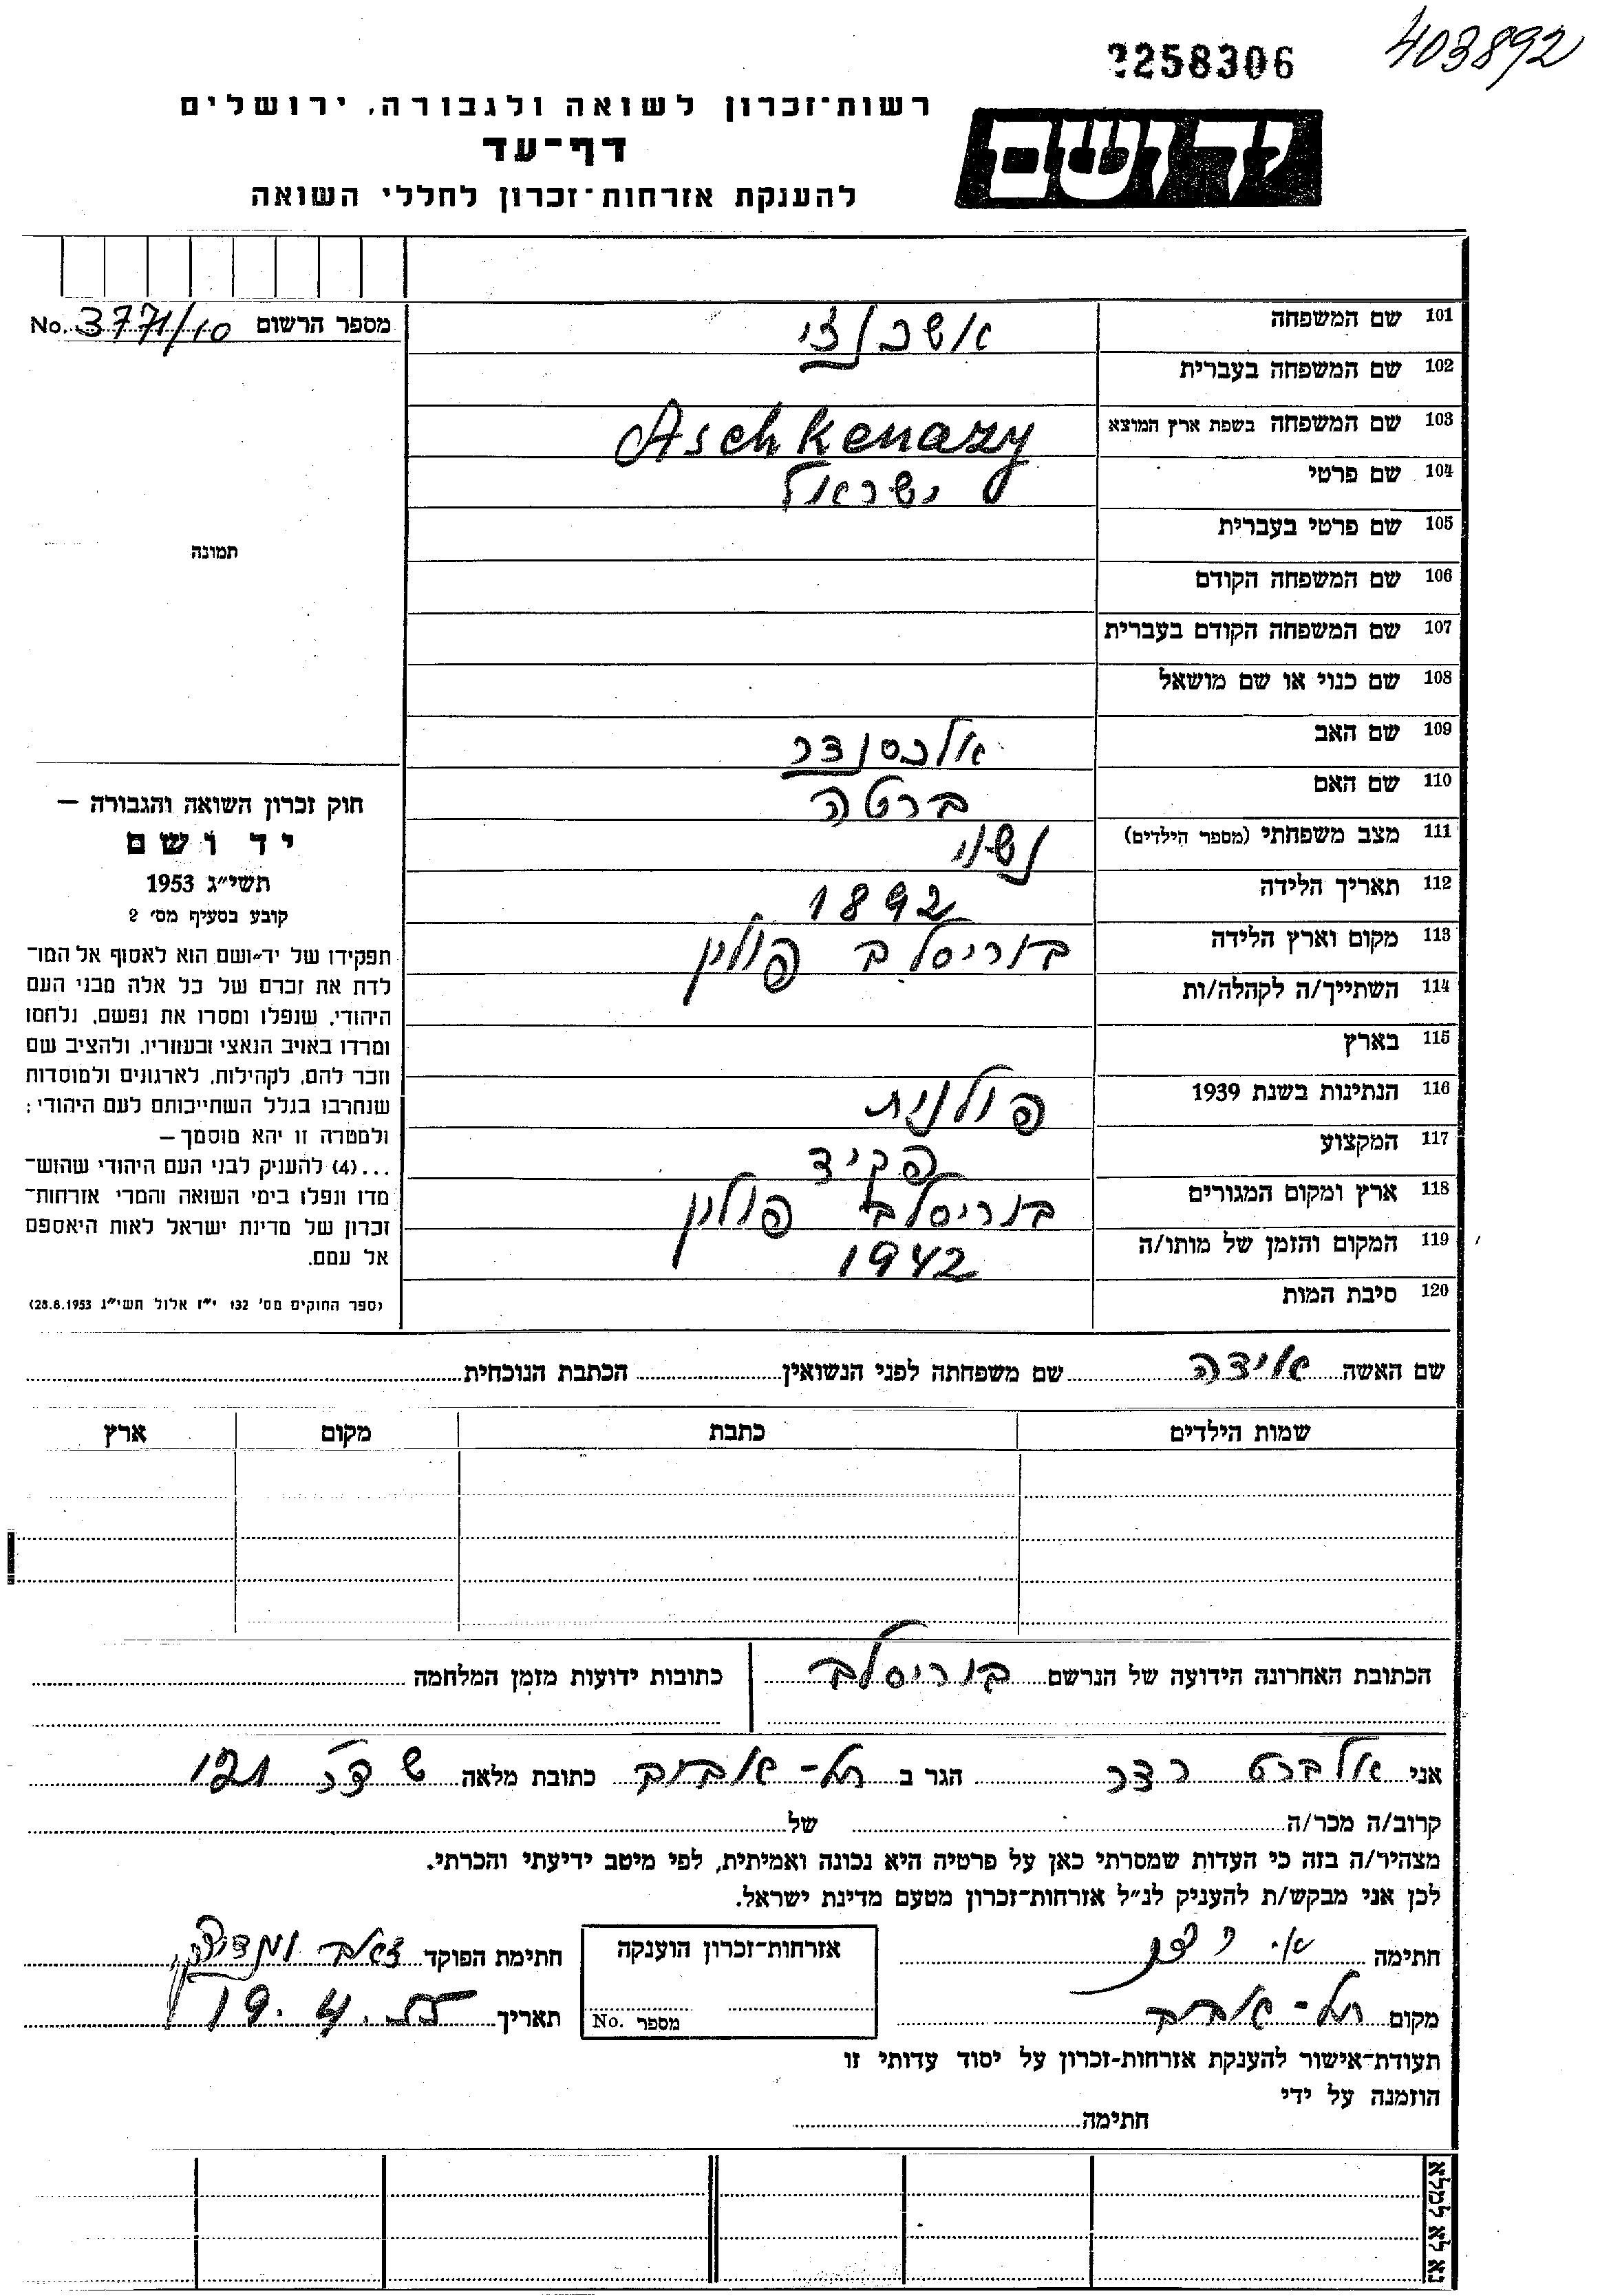 403892
2258306
רשות־זכרון לשואה ולגבורה, ירושלים
יד ושם
דף־עד
להענקת אזרחות־זכרון לחללי השואה
101 שם המשפחה אשכנזי
מספר הרשום No. 3771/10
102 שם המשפחה בעברית
103 שם המשפחה בשפת ארץ המוצא Aschkenazy
104 שם פרטי ישראל
105 שם פרטי בעברית
תמונה
106 שם המשפחה הקודם
107 שם המשפחה הקודם בעברית
108 שם כנוי או שם מושאל
109 שם האב אלכסנדר
110 שם האם ברטה
111 מצב משפחתי (מספר הילדים) נשוי
112 תאריך הלידה 1892
113 מקום וארץ הלידה בוריסלב פולין
114 השתייך/ה לקהלה/ות
115 בארץ
116 הנתינות בשנת 1939 פולנית
117 המקצוע פקיד
118 ארץ ומקום המגורים בוריסלב פולין
119 המקום והזמן של מותו/ה 1942
120 סיבת המות
חוק זכרון השואה והגבורה —
יד ושם
תשי״ג 1953
קובע בסעיף מס׳ 2
תפקידו של יד־ושם הוא לאסוף אל המו־
לדת את זכרם של כל אלה מבני העם
היהודי, שנפלו ומסרו את נפשם, נלחמו
ומרדו באויב הנאצי ובעוזריו, ולהציב שם
וזכר להם, לקהילות, לארגונים ולמוסדות
שנחרבו בגלל השתייכותם לעם היהודי;
ולמטרה זו יהא מוסמך —
...(4) להעניק לבני העם היהודי שהוש־
מדו ונפלו בימי השואה והמרי אזרחות־
זכרון של מדינת ישראל לאות היאספם
אל עמם.
(ספר החוקים מס׳ 132 י״ז אלול תשי״ג 28.8.1953)
שם האשה אידה שם משפחתה לפני הנשואין הכתבת הנוכחית
שמות הילדים כתבת מקום ארץ
הכתובת האחרונה הידועה של הנרשם בוריסלב כתובות ידועות מזמן המלחמה
אני אלברט רדר הגר ב תל־אביב כתובת מלאה 121
קרוב/ה מכר/ה של
מצהיר/ה בזה כי העדות שמסרתי כאן על פרטיה היא נכונה ואמיתית, לפי מיטב ידיעתי והכרתי.
לכן אני מבקש/ת להעניק לנ״ל אזרחות־זכרון מטעם מדינת ישראל.
חתימה אזרחות־זכרון הוענקה חתימת הפוקד
מקום תל־אביב מספר No. תאריך 19.4.55
תעודת־אישור להענקת אזרחות־זכרון על יסוד עדותי זו
הוזמנה על ידי
חתימה
נא לא למלא